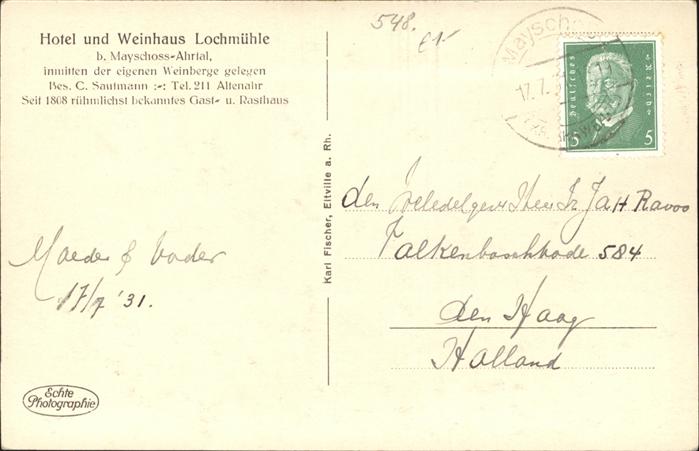 Hotel und Weinhaus Lochmühle
b. Mayschoss-Ahrtal,
inmitten der eigenen Weinberge gelegen
Bes. C. Sautmann :-: Tel. 211 Altenahr
Seit 1808 rühmlichst bekanntes Gast- u. Rasthaus
548.
£1-
Mayschoss
17.7.
Deutsches Reich
5 5
Karl Fischer, Eltville a. Rh.
den Weledelgeb Heer
J A H Ravoo
Falkenboschkade 584
den Haag
Holland
Moeder & Vader
17/7 '31.
Echte
Photographie